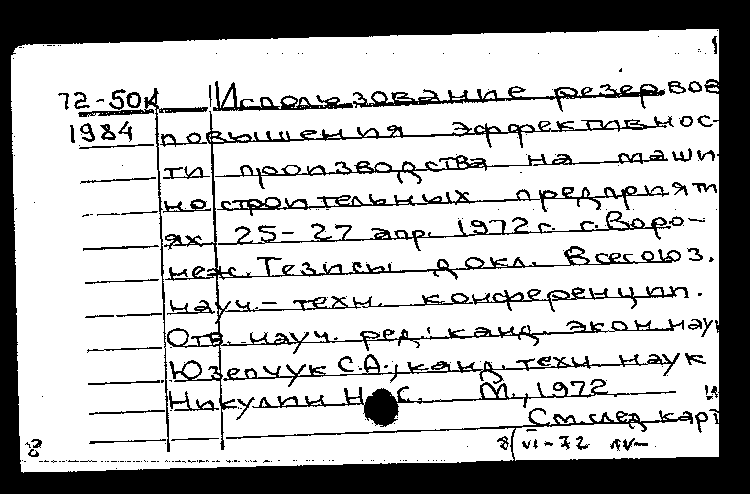 72-50К Использование резервов
1984 повышения эффективнос-
ти производства на маши-
ностроительных предприяти
ях 25-27 апр. 1972г. г.Воро-
неж. Тезисы докл. Всесоюз.
науч.-техн. конференции.
Отв. науч. ред.: канд. экон. наук
Юзепчук С.А., канд. техн. наук
Никулин Н. С. М., 1972.
См. след карт
8 8/VI-72